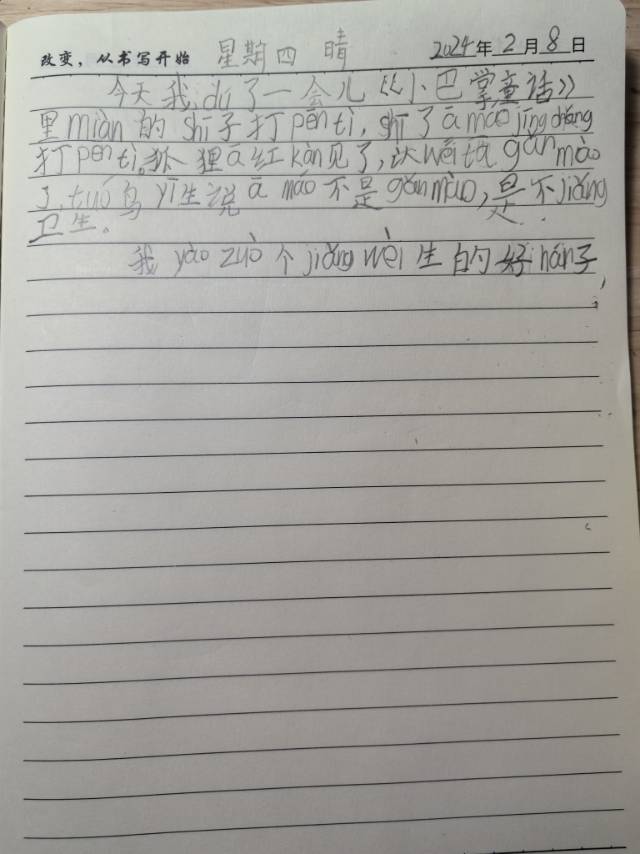 改变，从书写开始 星期四 晴 2024年2月8日
今天我dú了一会儿《《小巴掌童话》》
里miàn的shī子打pēn tì，shī了ā māo jīng cháng
打pēn tì。狐狸ā红kàn见了，以wéi tā gǎn mào
了，tuó鸟yī生说ā māo不是gǎn mào，是不jiǎng
卫生。
我yào zuò个jiǎng wèi生的好nán子，